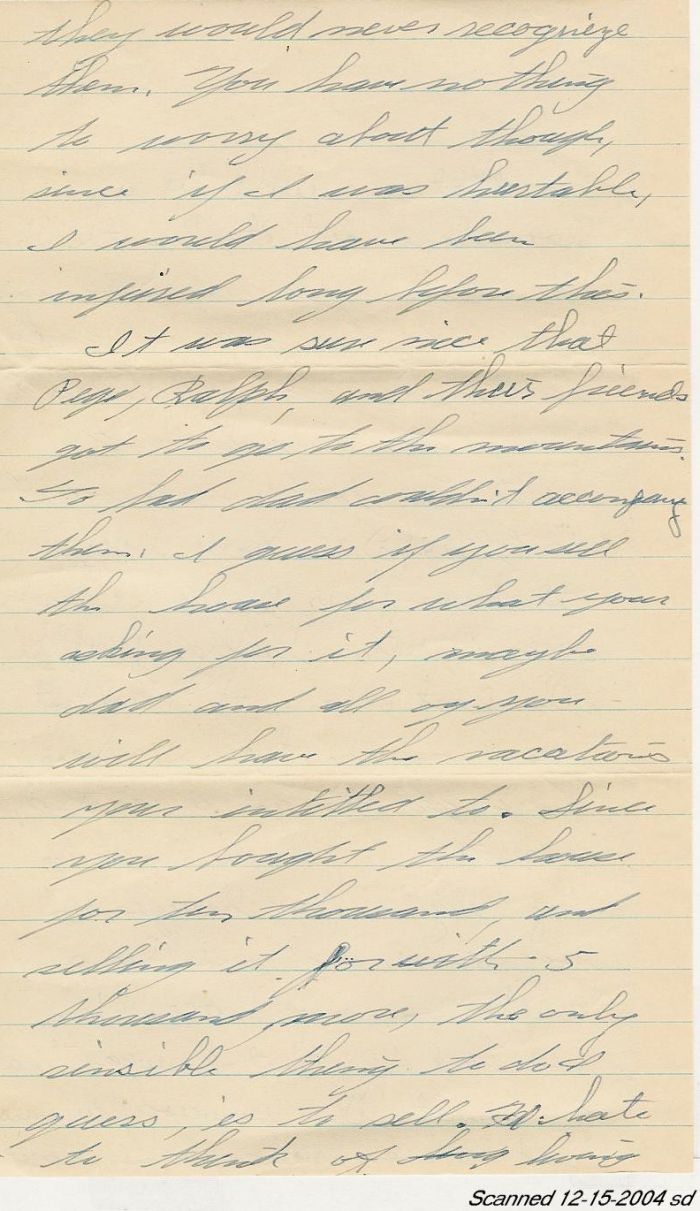 they would never recognieze
them. You have nothing
to worry about though,
since if I was hurtable,
I would have been
injured long before this.
It was sure nice that
Pege, Ralph, and their friends
got to go to the mountains.
To bad dad couldn't accompany
them. I guess if you sell
the house for what your
asking for it, maybe
dad and all of you
will have the vacations
your intitled to. Since
you bought the house
for ten thousand, and
selling it for with 5
thousand more, the only
sensible thing to do I
guess, is to sell. I'd hate
to think of living
Scanned 12-15-2004 sd